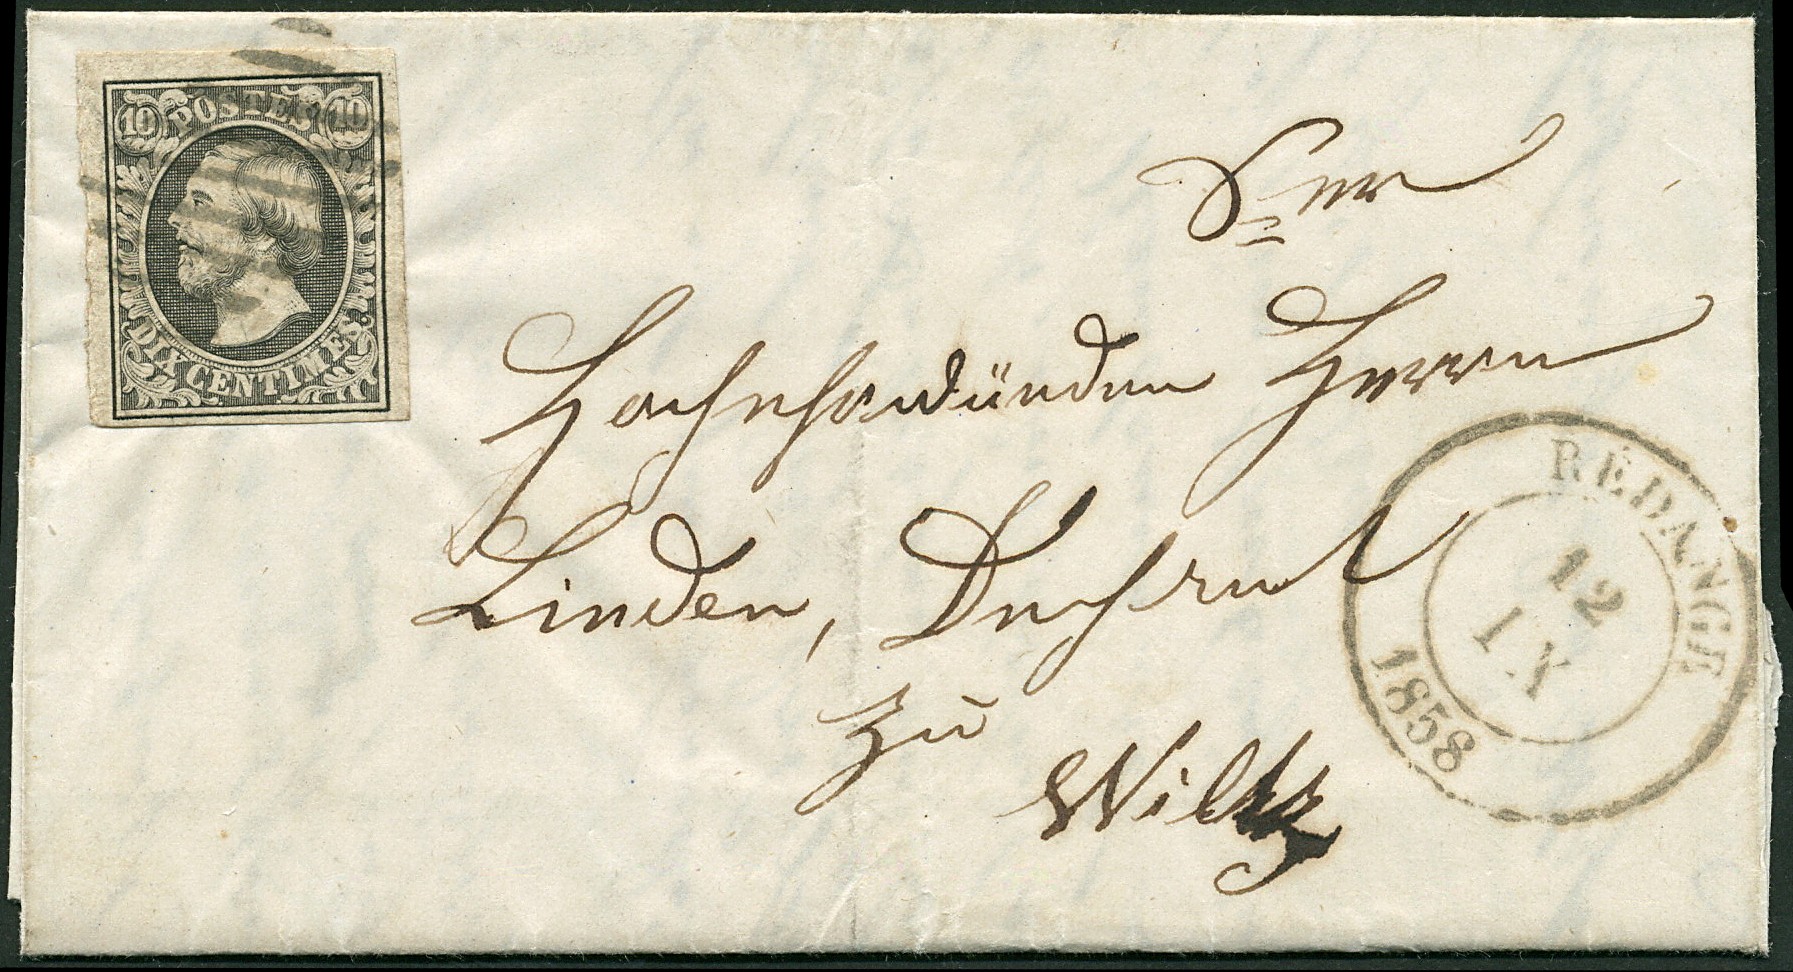 10 POSTES 10
DIX CENTIMES.
Sr er
Hochehrwürden Herrn
Linden, Dechant
zu
Wiltz
REDANGE
12
IX
1858